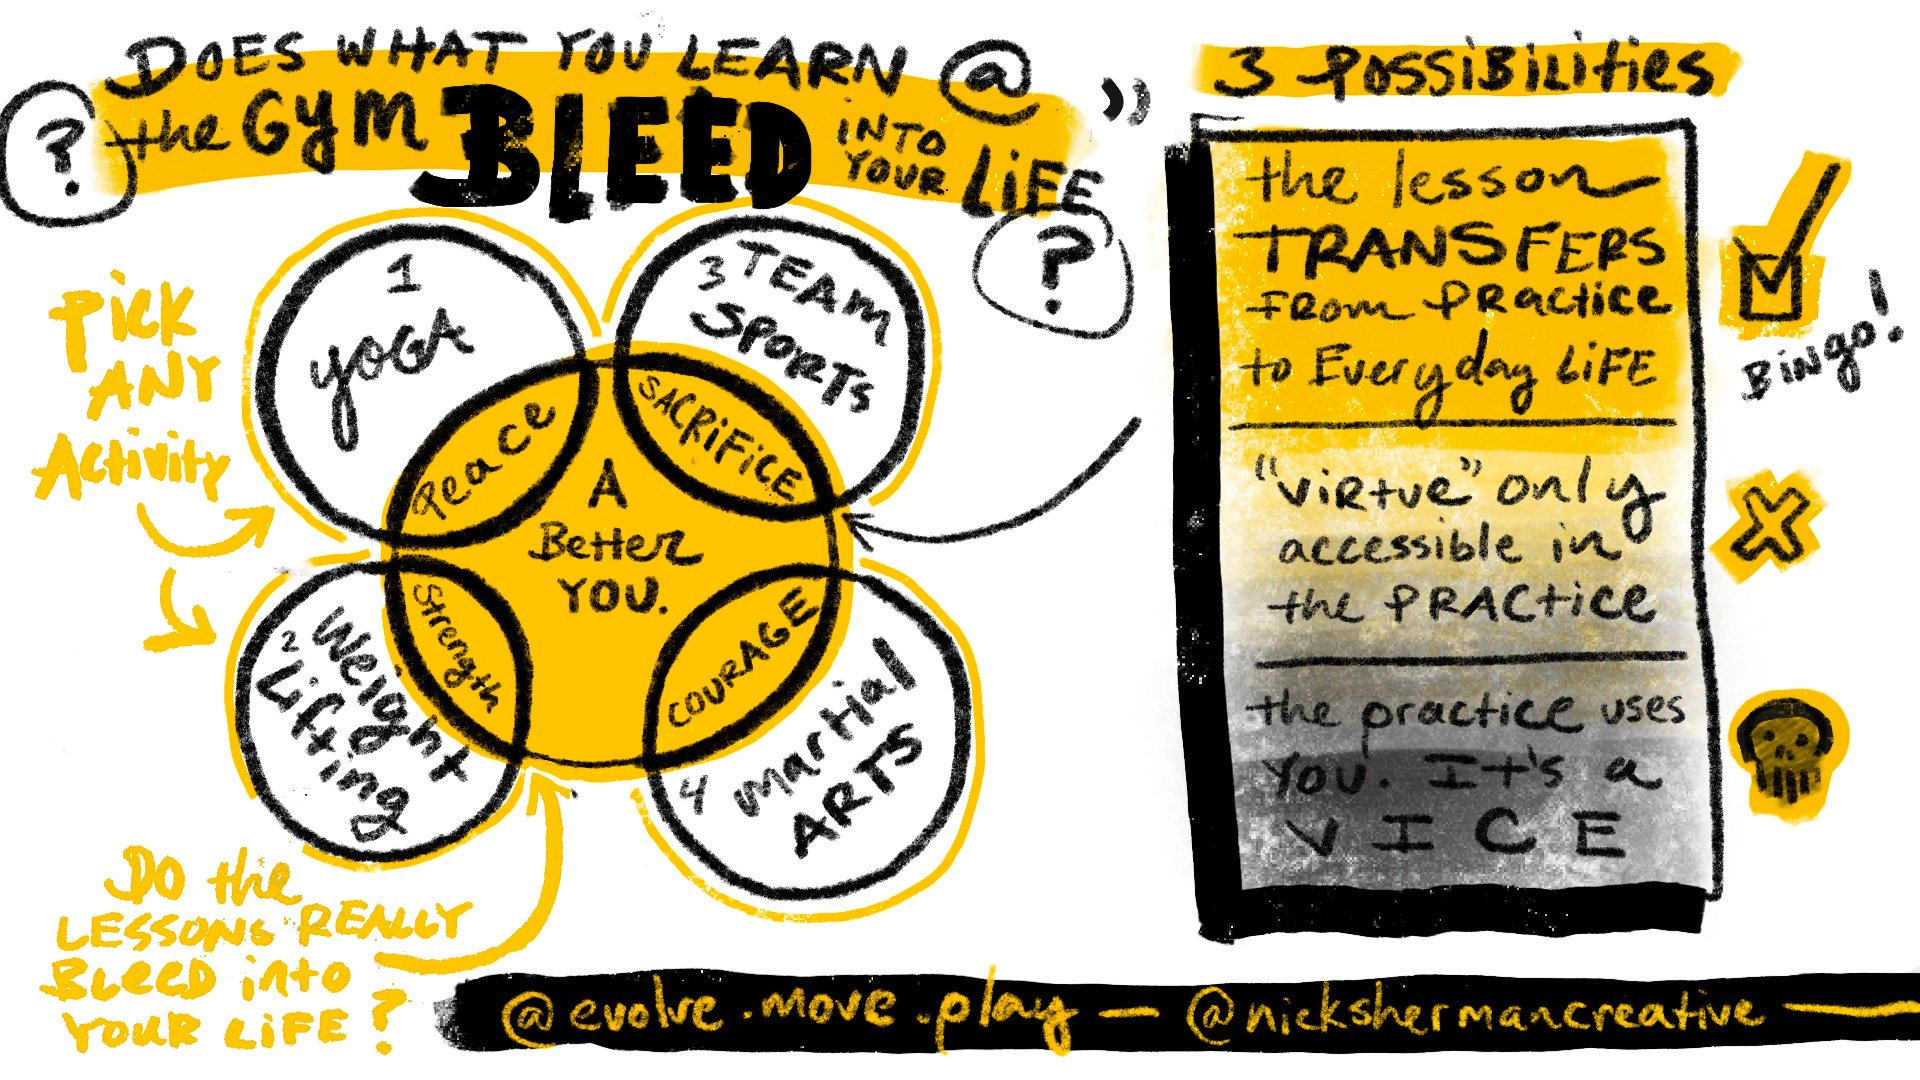 DOES WHAT YOU LEARN @
the GYM BLEED INTO YOUR LiFE
?
?
Pick
ANY
Activity
1
YOGA
Peace
3 TEAM
SPORTS
SACRiFiCE
A
Better
YOU.
2 Weight
Lifting
Strength
COURAGE
4 martial
ARTS
Do the
LESSONS REALLY
BLEED into
YOUR LiFE?
3 PossiBilities
the lesson
TRANSFERS
From PRactice
to Everyday LiFE
Bingo!
"ViRtue" only
accessible in
the PRACtice
the practice uses
You. It's a
VICE
@evolve.move.play — @nickshermancreative —